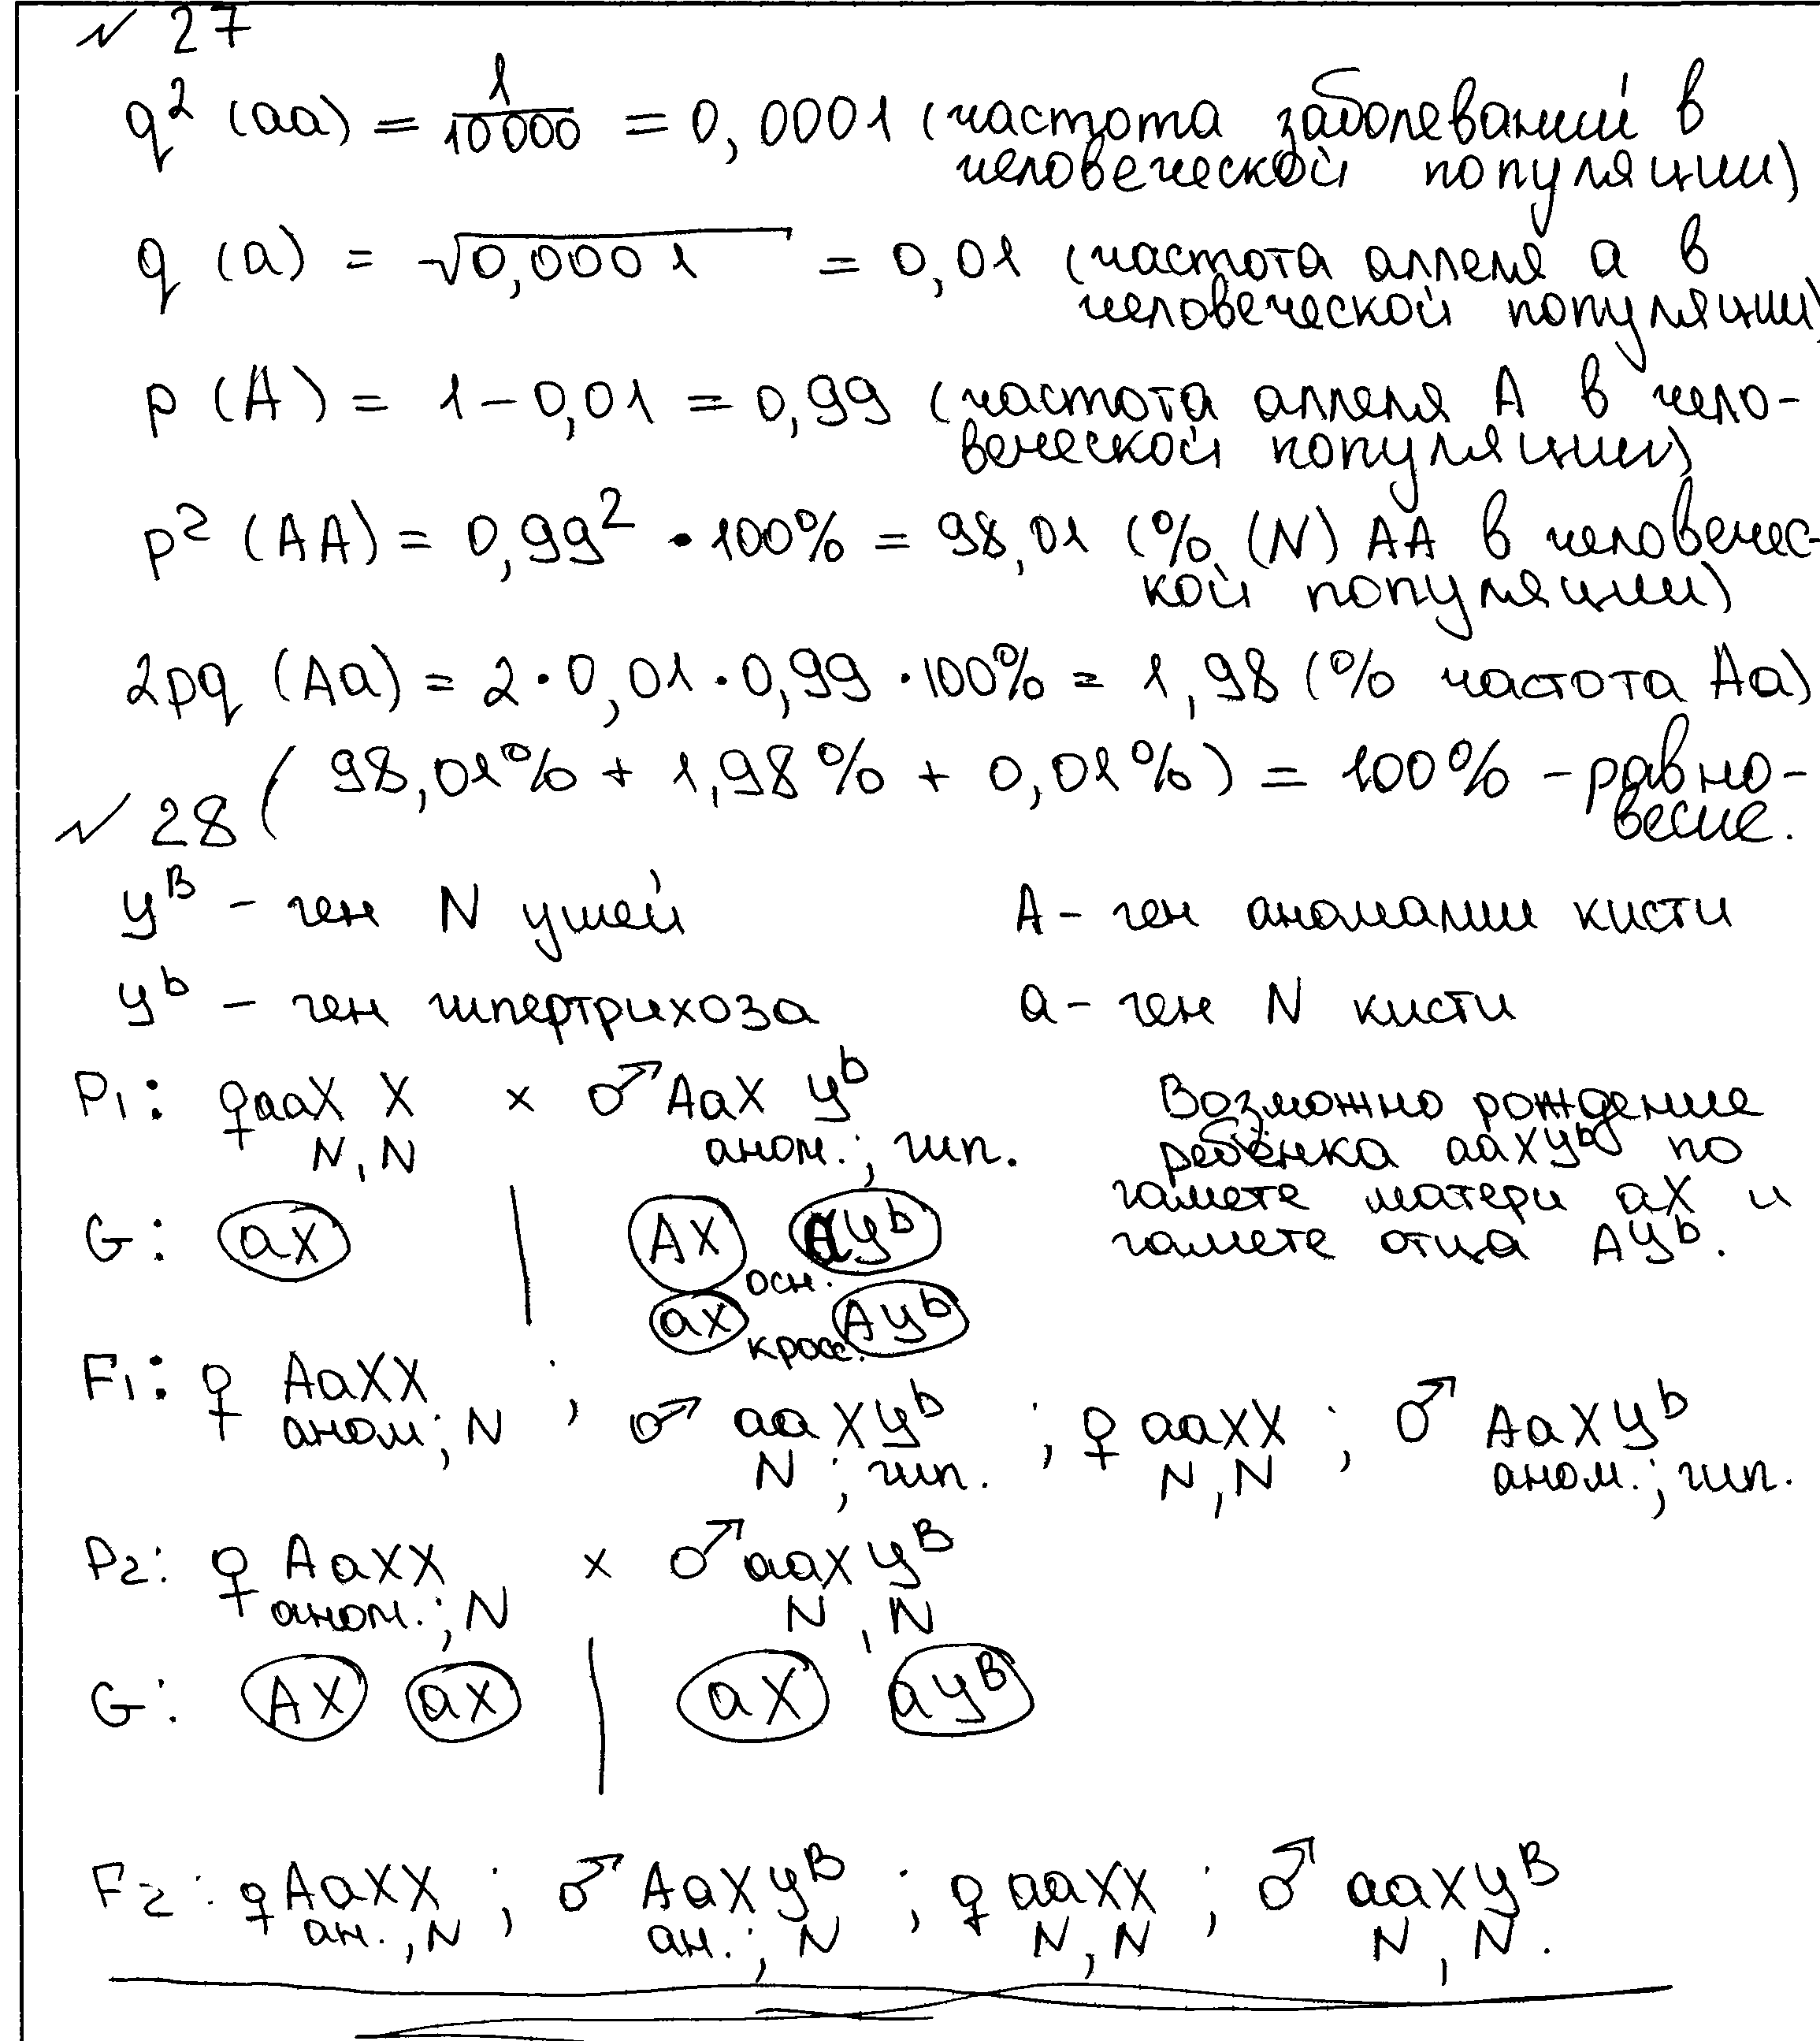 № 27
q² (aa) = 1/10000 = 0,0001 (частота заболеваний в
человеческой популяции)
q (a) = √0,0001 = 0,01 (частота аллеля а в
человеческой популяции)
p (A) = 1 − 0,01 = 0,99 (частота аллеля А в чело-
веческой популяции)
p² (AA) = 0,99² · 100% = 98,01 (% (N) AA в человечес-
кой популяции)
2pq (Aa) = 2 · 0,01 · 0,99 · 100% = 1,98 (% частота Aa)
(98,01% + 1,98% + 0,01%) = 100% - равно-
весие.
№ 28
yᴮ - ген N ушей
A - ген аномалии кисти
yᵇ - ген гипертрихоза
a - ген N кисти
P₁: ♀ aaX X × ♂ AaX yᵇ
N, N аном.; гип.
Возможно рождение
ребёнка aaXyᵇ по
гамете матери aX и
гамете отца Ayᵇ.
G: aX | AX ayᵇ
осн.
aX Ayᵇ
кросс.
F₁: ♀ AaXX ; ♂ aaXyᵇ ; ♀ aaXX ; ♂ AaXyᵇ
аном; N N; гип. N, N аном.; гип.
P₂: ♀ AaXX × ♂ aaXyᴮ
аном.; N N, N
G: AX aX | aX ayᴮ
F₂: ♀ AaXX ; ♂ AaXyᴮ ; ♀ aaXX ; ♂ aaXyᴮ
ан., N ан.; N N, N N, N.